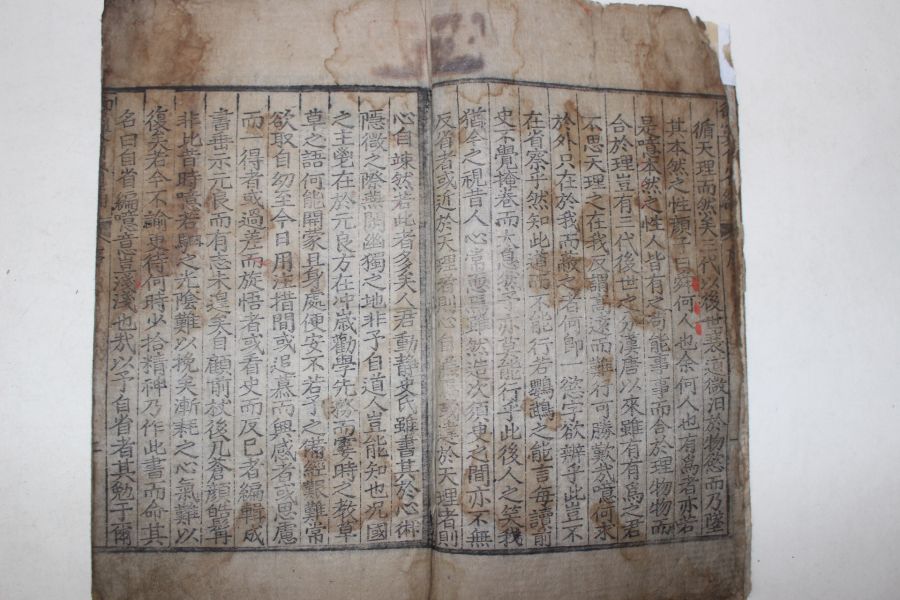 循天理而然矣三代以後世衰道微汨於物慾而乃墜
其本然之性顔子曰舜何人也余何人也有爲者亦若
是噫本然之性人皆有之苟能事事而合於理物物而
合於理豈有三代後世之分漢唐以來雖有有爲之君
不思天理之在我反謂高遠而難行可勝歎哉噫何求
於外只在於我而敵之者何卽一慾字欲辨乎此豈不
在省察乎然知此道而不能行若鸚鵡之能言每讀前
史不覺掩卷而太息然予亦莫能行乎此後人之笑我
猶今之視昔人心常恧焉雖然造次須臾之間亦不無
反省者或近於天理者則心自或遠於天理者則
心自竦然若此者多矣人君動靜史氏雖書其於心術
隱微之際燕閒幽獨之地非予自道人豈能知也况國
之主鬯在於元良方在冲歲勸學先務而霎時之教草
草之語何能開蒙且身處便安不若予之備經艱難常
欲取自幼至今日用注措間或追慕而興感者或思慮
而一得者或過差而旋悟者或看史而反己者編輯成
書垂示元良而有志未遑矣自顧前杖後几倉顔皓髩
非比昔時噫若駟之光陰難以挽矣漸耗之心氣難以
復矣若今不諭更待何時少拾精神乃作此書而命其
名曰自省編噫意豈淺淺也哉以予自省者其勉于爾